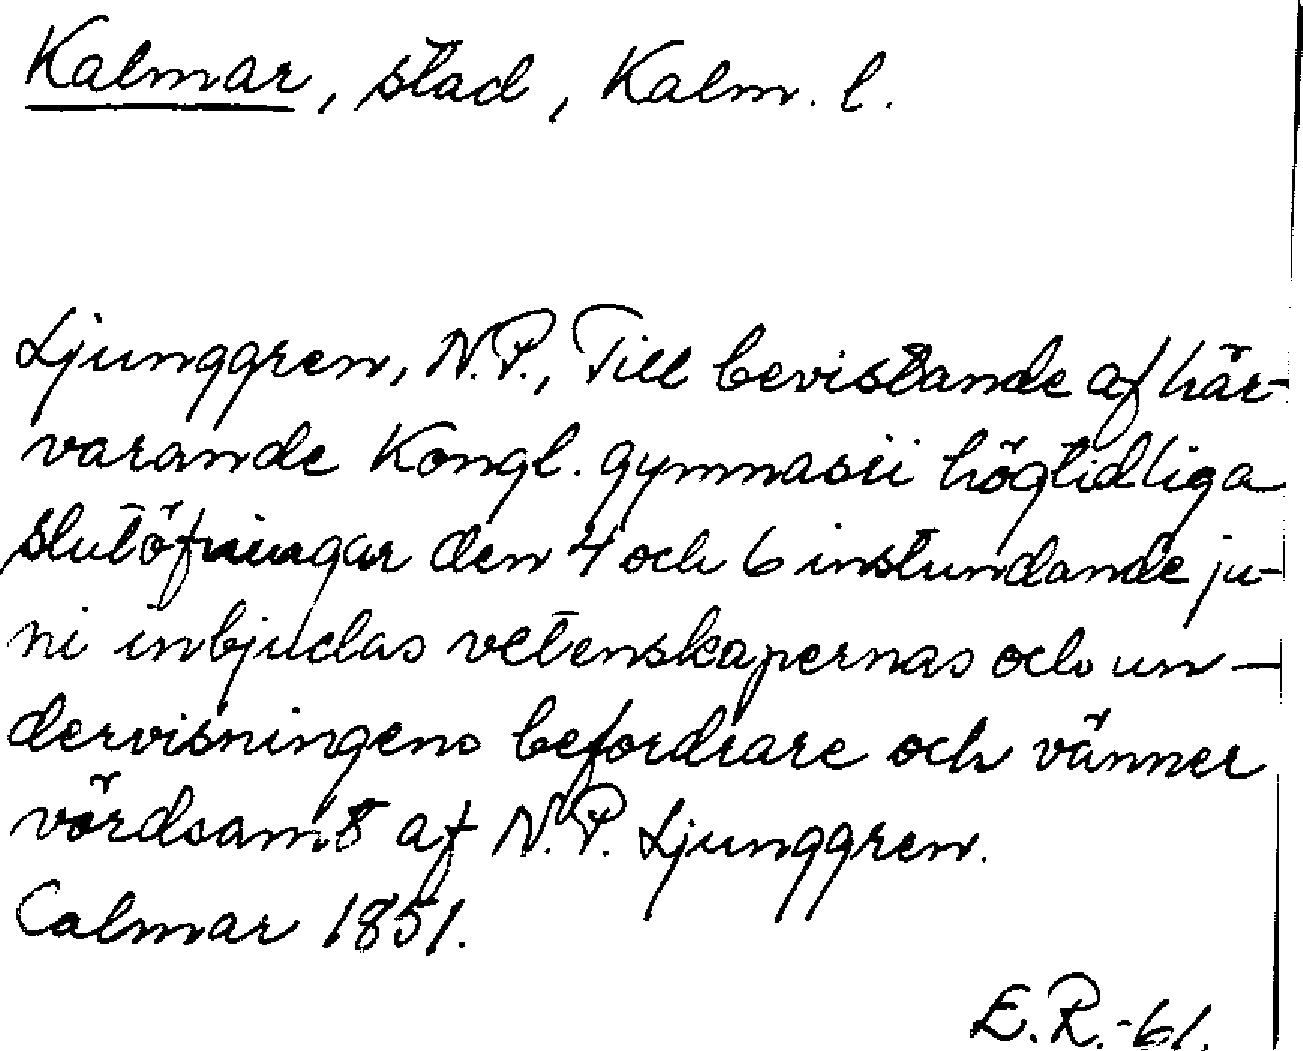 Kalmar, stad, Kalm. l.
Ljunggren, N.P., Till bevistande af här-
varande Kongl. gymnasii högtidliga
slutöfningar den 4 och 6 instundande ju-
ni inbjudas vetenskapernas och un-
dervisningens befordrare och vänner
vördsamt af N.P. Ljunggren.
Calmar 1851.
E.R.-61.